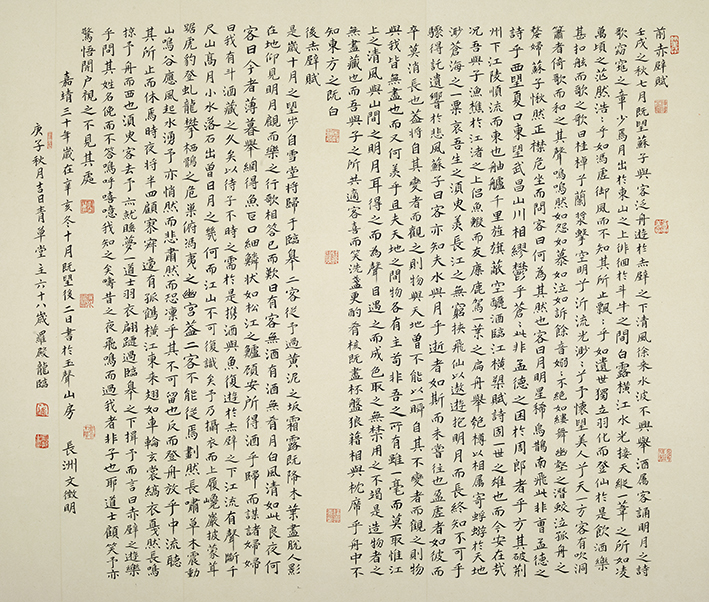 前赤壁賦
壬戌之秋七月既望蘇子與客泛舟遊於赤壁之下清風徐來水波不興舉酒屬客誦明月之詩
歌窈窕之章少焉月出於東山之上徘徊於斗牛之間白露橫江水光接天縱一葦之所如凌
萬頃之茫然浩浩乎如馮虛御風而不知其所止飄飄乎如遺世獨立羽化而登仙於是飲酒樂
甚扣舷而歌之歌曰桂棹兮蘭槳擊空明兮泝流光渺渺兮予懷望美人兮天一方客有吹洞
簫者倚歌而和之其聲嗚嗚然如怨如慕如泣如訴餘音嫋嫋不絕如縷舞幽壑之潛蛟泣孤舟之
嫠婦蘇子愀然正襟危坐而問客曰何為其然也客曰月明星稀烏鵲南飛此非曹孟德之
詩乎西望夏口東望武昌山川相繆鬱乎蒼蒼此非孟德之困於周郎者乎方其破荊
州下江陵順流而東也舳艫千里旌旗蔽空釃酒臨江橫槊賦詩固一世之雄也而今安在哉
況吾與子漁樵於江渚之上侶魚鰕而友麋鹿駕一葉之扁舟舉匏樽以相屬寄蜉蝣於天地
渺滄海之一粟哀吾生之須臾羨長江之無窮挾飛仙以遨遊抱明月而長終知不可乎
驟得託遺響於悲風蘇子曰客亦知夫水與月乎逝者如斯而未嘗往也盈虛者如彼而
卒莫消長也蓋將自其變者而觀之則物與天地曾不能以瞬自其不變者而觀之則物
與我皆無盡也而又何羨乎且夫天地之間物各有主苟非吾之所有雖一毫而莫取惟江
上之清風與山間之明月耳得之而為聲目遇之而成色取之無禁用之不竭是造物者之
無盡藏也而吾與子之所共適客喜而笑洗盞更酌肴核既盡杯盤狼藉相與枕席乎舟中不
知東方之既白
後赤壁賦
是歲十月之望步自雪堂將歸于臨皋二客從予過黃泥之坂霜露既降木葉盡脫人影
在地仰見明月顧而樂之行歌相答已而歎曰有客無酒有酒無肴月白風清如此良夜何
客曰今者薄暮舉網得魚巨口細鱗狀如松江之鱸顧安所得酒乎歸而謀諸婦婦
曰我有斗酒藏之久矣以待子不時之需於是攜酒與魚復遊於赤壁之下江流有聲斷千
尺山高月小水落石出曾日月之幾何而江山不可復識矣予乃攝衣而上履巉巖披蒙茸
踞虎豹登虬龍攀栖鶻之危巢俯馮夷之幽宮蓋二客不能從焉劃然長嘯草木震動
山鳴谷應風起水湧予亦悄然而悲肅然而恐凜乎其不可留也反而登舟放乎中流聽
其所止而休焉時夜將半四顧寂寥適有孤鶴橫江東來翅如車輪玄裳縞衣戛然長鳴
掠予舟而西也須臾客去予亦就睡夢一道士羽衣翩躚過臨皋之下揖予而言曰赤壁之遊樂
乎問其姓名俛而不答嗚呼噫嘻我知之矣疇昔之夜飛鳴而過我者非子也耶道士顧笑予亦
驚悟開戶視之不見其處
嘉靖三十年歲在辛亥冬十月既望後二日書於玉聲山房 長洲文徵明
庚子秋月吉日青草堂主六十八歲羅殿龍臨